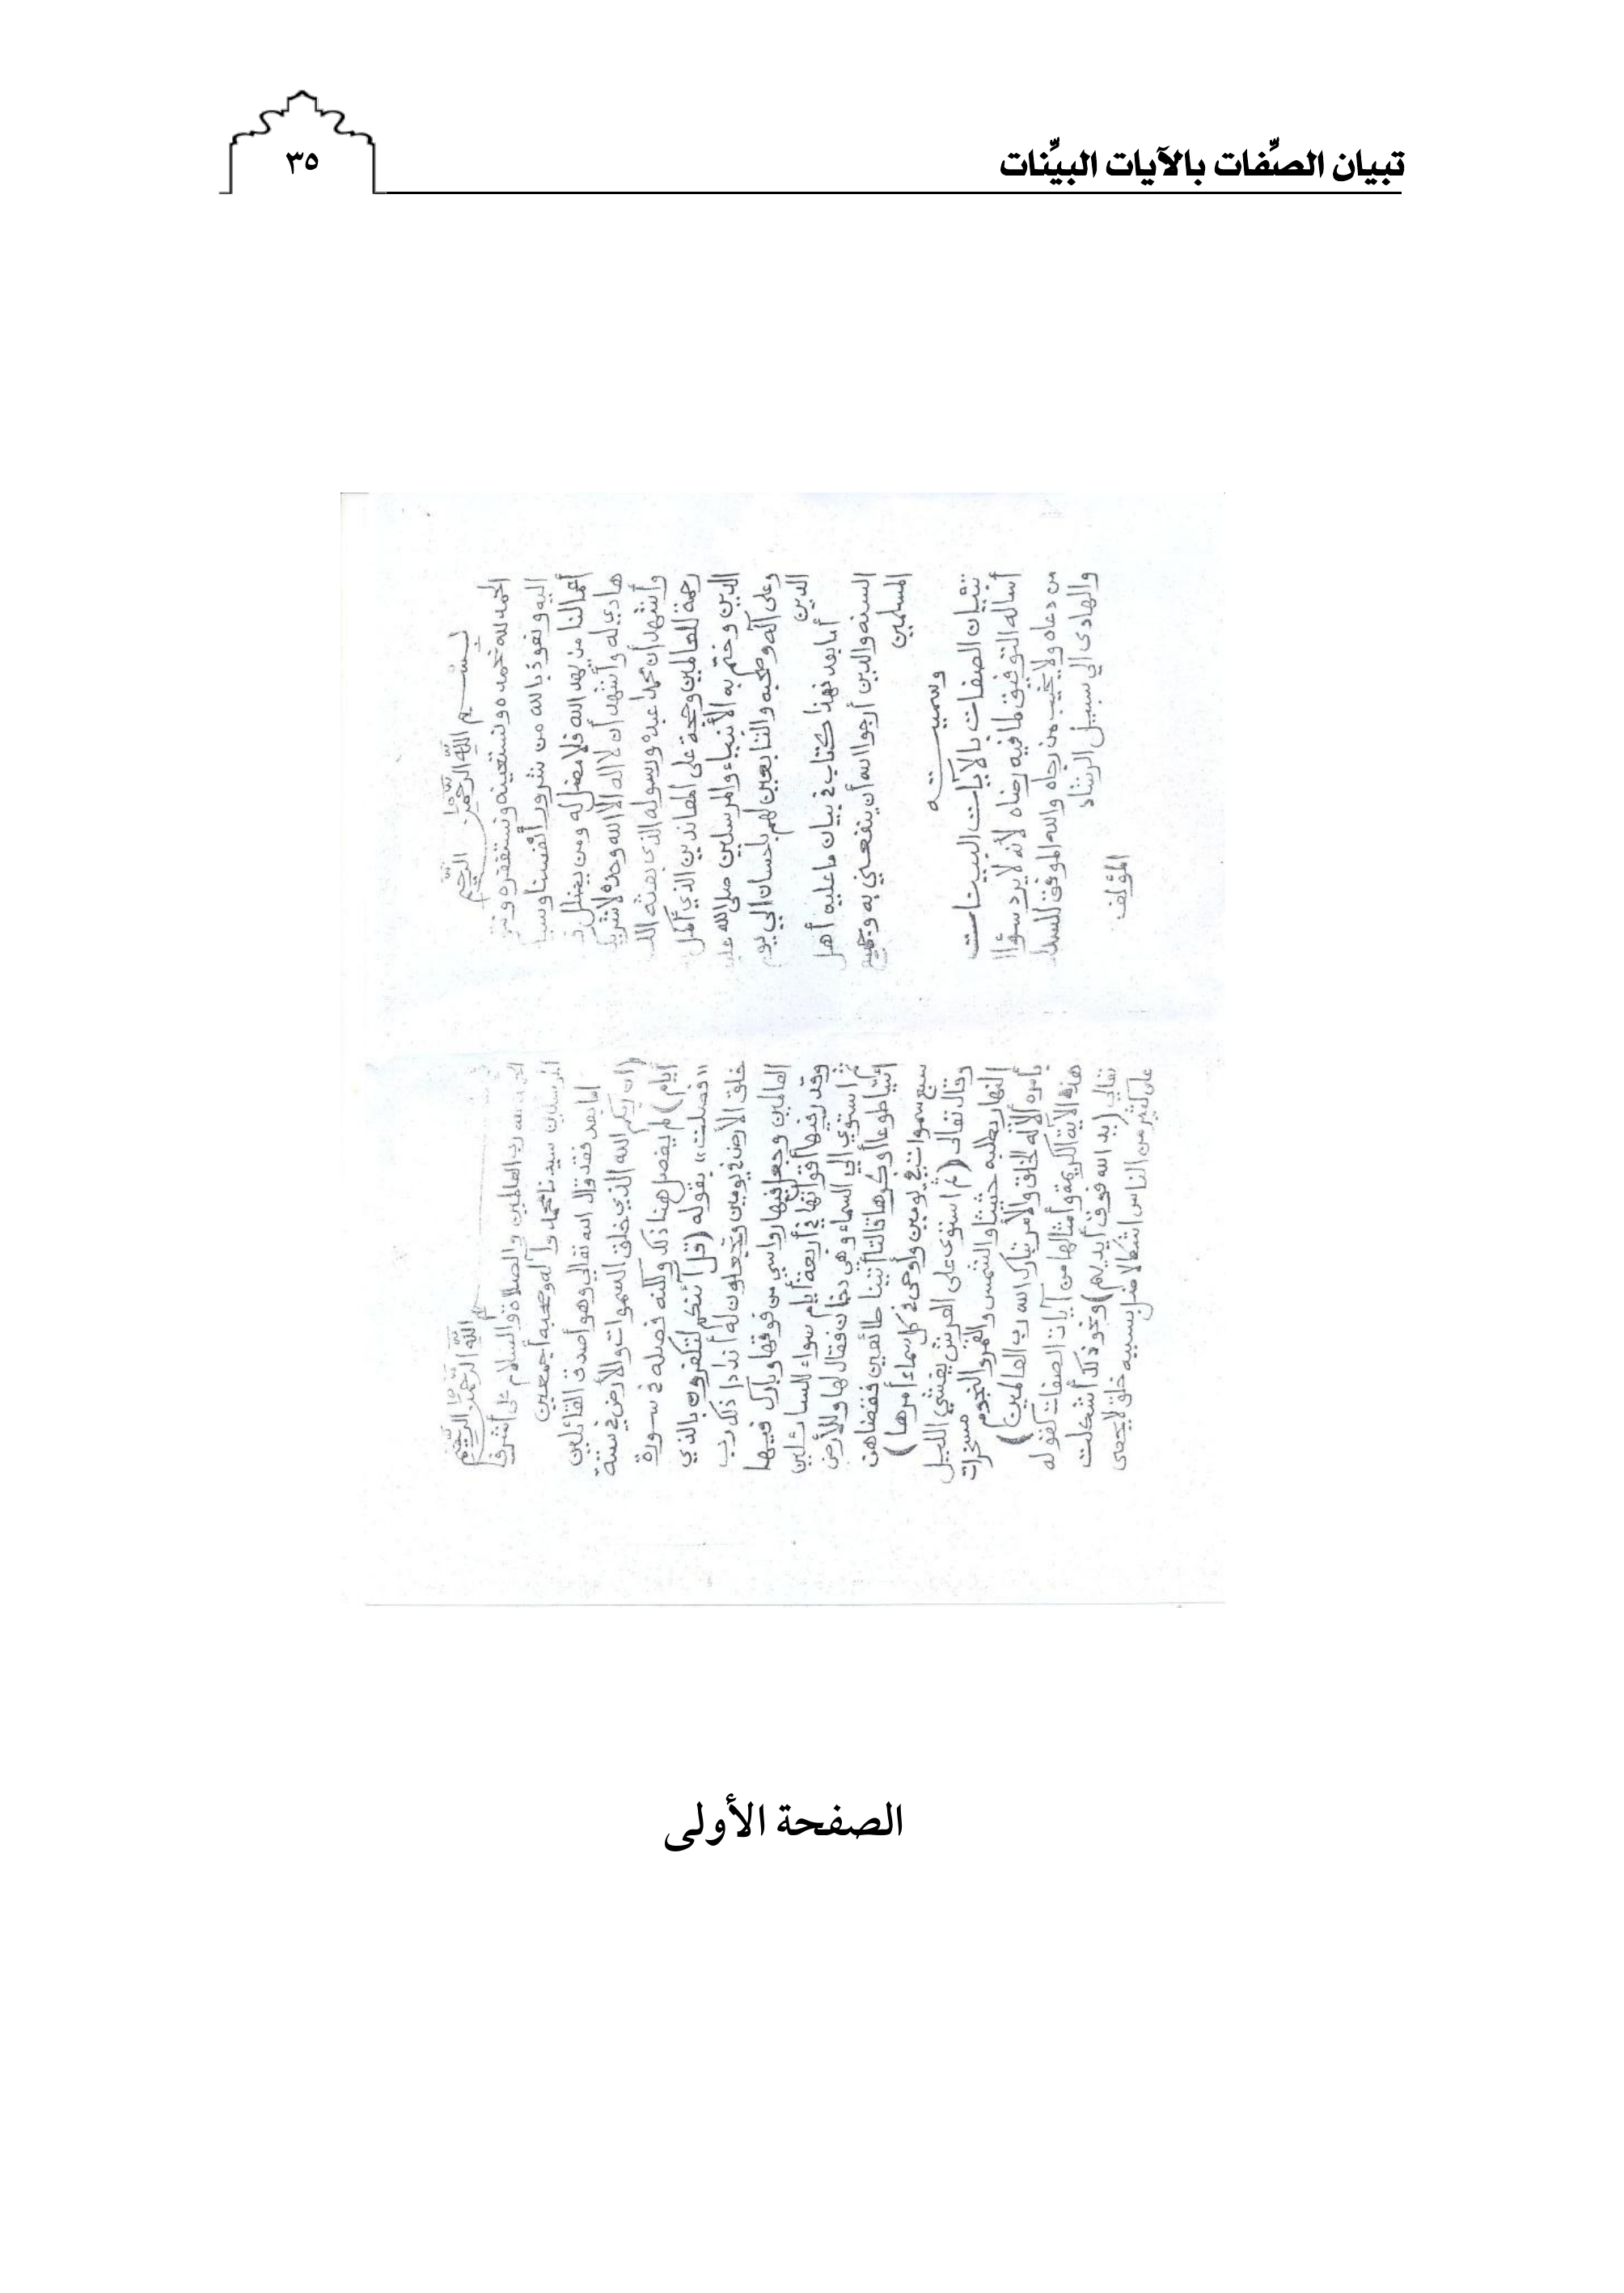 تبيان الصِّفات بالآيات البيِّنات
٣٥
بسم الله الرحمن الرحيم
الحمد لله نحمده ونستعينه ونستغفره ونتو
اليه ونعوذ بالله من شرور أنفسنا وسيئا
أعمالنا من يهد الله فلا مضل له ومن يضلل
هادي له وأشهد أن لا اله الا الله وحده لا شريك
وأشهد أن محمدا عبده ورسوله الذي بعثه الله
رحمة للعالمين وحجة على المعاندين الذي أكمل
الدين وختم به الأنبياء والمرسلين صلى الله عليه
وعلى آله وصحبه والتابعين لهم بإحسان الى يوم
الدين
أما بعد فهذا كتاب في بيان ما عليه أهل
السنه والدين أرجوا الله أن ينفعني به وجميع
المسلمين
وسميته
تبيان الصفات بالآيات البينات
أسأله التوفيق لما فيه رضاه لأنه لا يرد سؤال
من دعاه ولا يخيب من رجاه والله الموفق للسداد
والهادى الى سبيل الرشاد
المؤلف
بسم الله الرحمن الرحيم
الحمد لله رب العالمين والصلاة والسلام على أشرف
المرسلين سيدنا محمد وآله وصحبه أجمعين
أما بعد فقد قال الله تعالى وهو أصدق القائلين
(ان ربكم الله الذي خلق السموات والأرض في ستة
أيام) لم يفصل هنا ذلك ولكنه فصله في سورة
«فصلت» بقوله (قل أئنكم لتكفرون بالذي
خلق الأرض في يومين وتجعلون له أندادا ذلك رب
العالمين وجعل فيها رواسي من فوقها وبارك فيها
وقدر فيها أقواتها في أربعة أيام سواء للسائلين
ثم استوي الى السماء وهي دخان فقال لها وللأرض
أئتيا طوعا أو كرها قالتا أتينا طائعين فقضاهن
سبع سموات في يومين وأوحى في كل سماء أمرها)
وقال تعالى (ثم استوى على العرش يغشي الليل
النهار يطلبه حثيثا والشمس والقمر والنجوم مسخرات
بأمره ألا له الخلق والأمر تبارك الله رب العالمين)
هذه الآية الكريمة وأمثالها من آيات الصفات كقوله
تعالى (يد الله فوق أيديهم) ونحو ذلك أشكلت
على كثير من الناس اشكالا ضل بسببه خلق لا يحصى
الصفحة الأولى